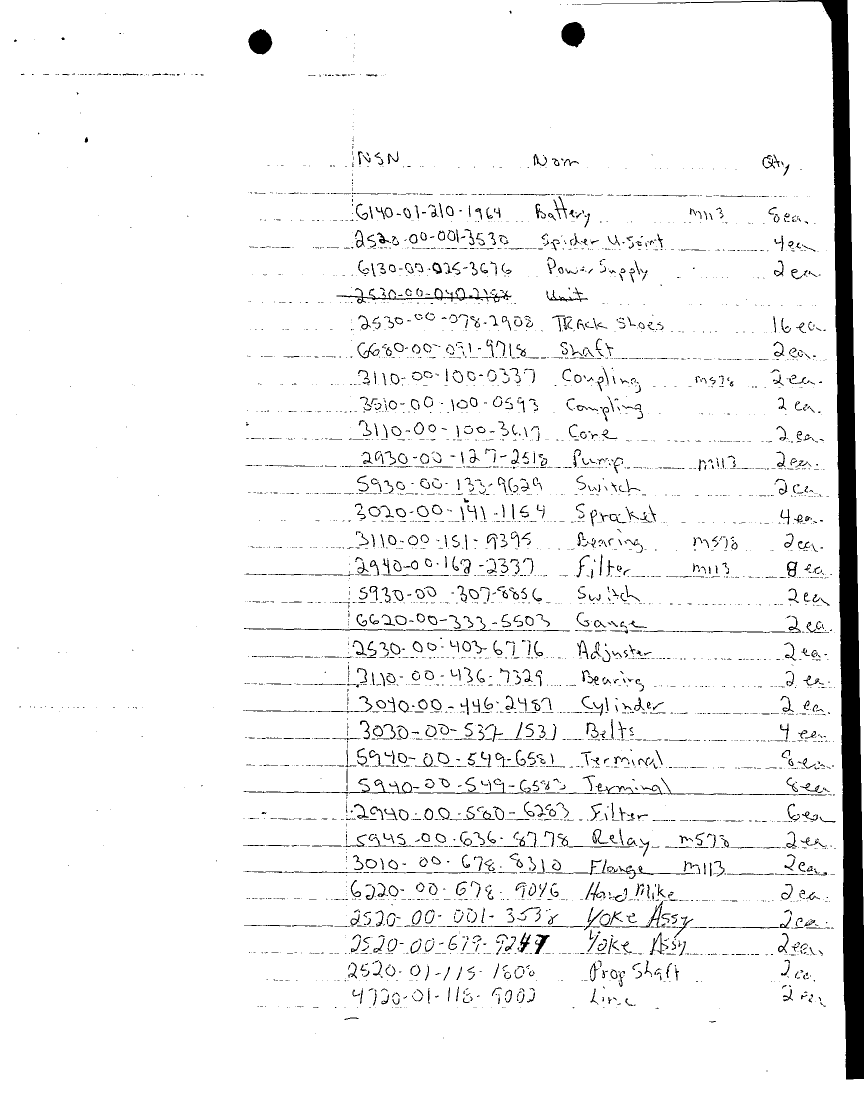 NSN Nom Qty
6140-01-210-1964 Battery m113 8ea.
2520-00-001-3530 Spider U-Joint 4ea
6130-00-025-3676 Power Supply 2ea
2530-00-040-2188 Unit
2530-00-078-2908 TRACK Shoes 16ea
6680-00-091-9718 Shaft 2ea.
3110-00-100-0337 Coupling m578 2ea.
3010-00-100-0593 Coupling 2ea.
3110-00-100-3617 Cone 2ea.
2930-00-127-2518 Pump m113 2ea.
5930-00-133-9629 Switch 2ea
3020-00-141-1154 Sprocket 4ea.
3110-00-151-9395 Bearing m578 2ea.
2940-00-162-2337 Filter m113 8ea
5930-00-307-8856 Switch 2ea
6620-00-333-5503 Gauge 2ea.
2530-00-403-6776 Adjuster 2ea.
3110-00-436-7329 Bearing 2ea.
3040-00-446-2487 Cylinder 2ea.
3030-00-537-1531 Belts 4ea.
5940-00-549-6581 Terminal 8ea
5940-00-549-6583 Terminal 8ea
2940-00-580-6283 Filter 6ea
5945-00-636-8778 Relay m578 2ea
3010-00-678-8310 Flange m113 2ea.
6220-00-678-9046 Hand Mike 2ea.
2520-00-001-3538 Yoke Assy 2ea.
2520-00-679-9247 Yoke Assy 2ea.
2520-01-115-1808 Prop Shaft 2ea.
4720-01-118-9002 Line 2ea